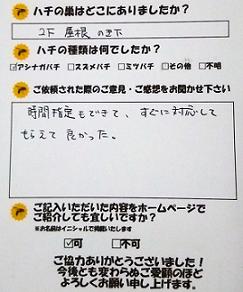 ハチの巣はどこにありましたか？
2F 屋根の下
ハチの種類は何でしたか？
☑アシナガバチ □スズメバチ □ミツバチ □その他 □不明
ご依頼された際のご意見・ご感想をお聞かせ下さい
時間指定もできて、すぐに対応して
もらえて良かった。
ご記入いただいた内容をホームページで
ご紹介しても宜しいですか？
※お名前はイニシャルで掲載いたします
☑可 □不可
ご協力ありがとうございました！
今後とも変わらぬご愛顧のほど
よろしくお願い申し上げます。